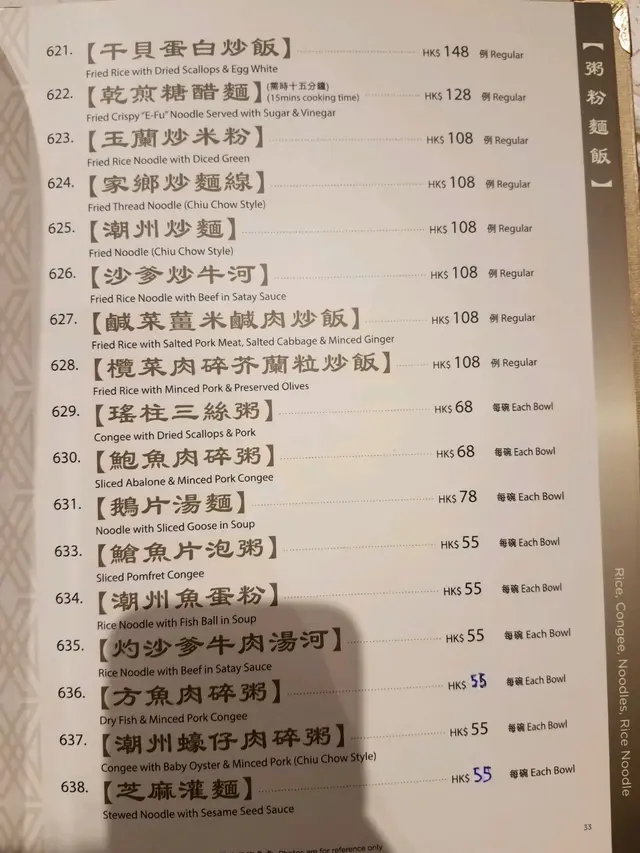 621. 【干貝蛋白炒飯】 HK$ 148 例 Regular
Fried Rice with Dried Scallops & Egg White
622. 【乾煎糖醋麵】 (需時十五分鐘) (15mins cooking time) HK$ 128 例 Regular
Fried Crispy "E-Fu" Noodle Served with Sugar & Vinegar
623. 【玉蘭炒米粉】 HK$ 108 例 Regular
Fried Rice Noodle with Diced Green
624. 【家鄉炒麵線】 HK$ 108 例 Regular
Fried Thread Noodle (Chiu Chow Style)
625. 【潮州炒麵】 HK$ 108 例 Regular
Fried Noodle (Chiu Chow Style)
626. 【沙爹炒牛河】 HK$ 108 例 Regular
Fried Rice Noodle with Beef in Satay Sauce
627. 【鹹菜薑米鹹肉炒飯】 HK$ 108 例 Regular
Fried Rice with Salted Pork Meat, Salted Cabbage & Minced Ginger
628. 【欖菜肉碎芥蘭粒炒飯】 HK$ 108 例 Regular
Fried Rice with Minced Pork & Preserved Olives
629. 【瑤柱三絲粥】 HK$ 68 每碗 Each Bowl
Congee with Dried Scallops & Pork
630. 【鮑魚肉碎粥】 HK$ 68 每碗 Each Bowl
Sliced Abalone & Minced Pork Congee
631. 【鵝片湯麵】 HK$ 78 每碗 Each Bowl
Noodle with Sliced Goose in Soup
633. 【鱠魚片泡粥】 HK$ 55 每碗 Each Bowl
Sliced Pomfret Congee
634. 【潮州魚蛋粉】 HK$ 55 每碗 Each Bowl
Rice Noodle with Fish Ball in Soup
635. 【灼沙爹牛肉湯河】 HK$ 55 每碗 Each Bowl
Rice Noodle with Beef in Satay Sauce
636. 【方魚肉碎粥】 HK$ 55 每碗 Each Bowl
Dry Fish & Minced Pork Congee
637. 【潮州蠔仔肉碎粥】 HK$ 55 每碗 Each Bowl
Congee with Baby Oyster & Minced Pork (Chiu Chow Style)
638. 【芝麻灌麵】 HK$ 55 每碗 Each Bowl
Stewed Noodle with Sesame Seed Sauce
【粥粉麵飯】
Rice, Congee, Noodles, Rice Noodle
33
Photos are for reference only